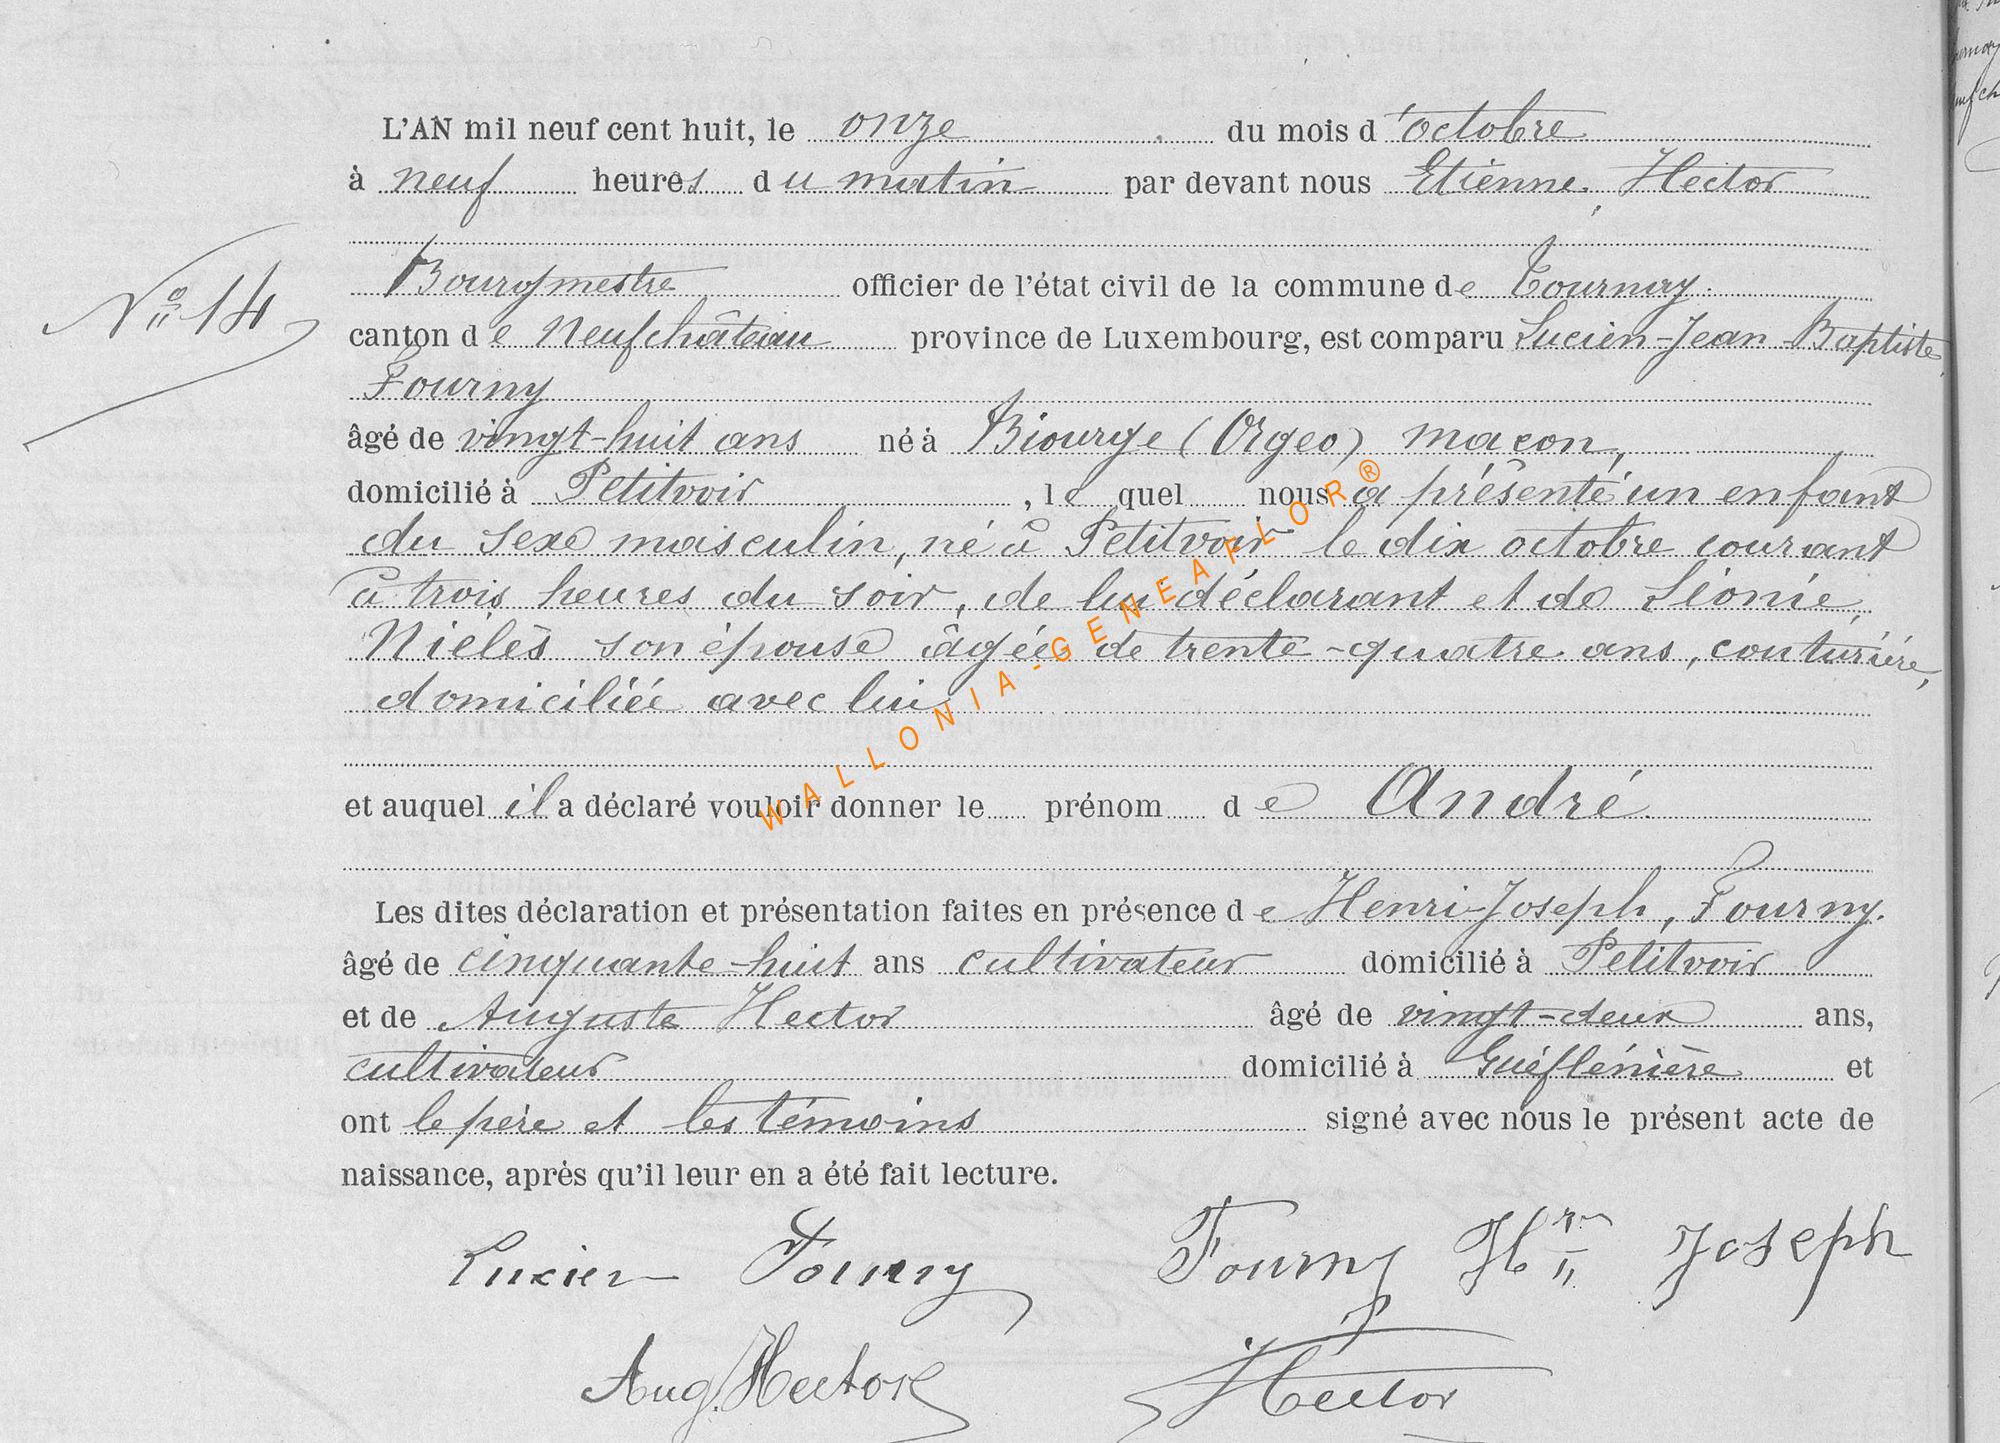 L'AN mil neuf cent huit, le onze du mois d'octobre
à neuf heures du matin par devant nous Etienne, Hector
Bourgmestre officier de l'état civil de la commune de Tournay.
N° 14
canton de Neufchâteau province de Luxembourg, est comparu Lucien-Jean-Baptiste,
Fourny
âgé de vingt-huit ans né à Biourge (Orgeo) maçon,
domicilié à Petitvoir, lequel nous a présenté un enfant
du sexe masculin, né à Petitvoir le dix octobre courant
à trois heures du soir, de lui déclarant et de Léonie,
Nielès son épouse âgée de trente-quatre ans, couturière,
domiciliée avec lui
et auquel il a déclaré vouloir donner le prénom de André.
Les dites déclaration et présentation faites en présence de Henri-Joseph, Fourny.
âgé de cinquante-huit ans cultivateur domicilié à Petitvoir
et de Auguste Hector âgé de vingt-deux ans,
cultivateur domicilié à Grifflénière et
ont le père et les témoins signé avec nous le présent acte de
naissance, après qu'il leur en a été fait lecture.
Lucien Fourny Fourny Hri Joseph
Aug. Hector Hector
WALLONIA-GENEAFLOR®